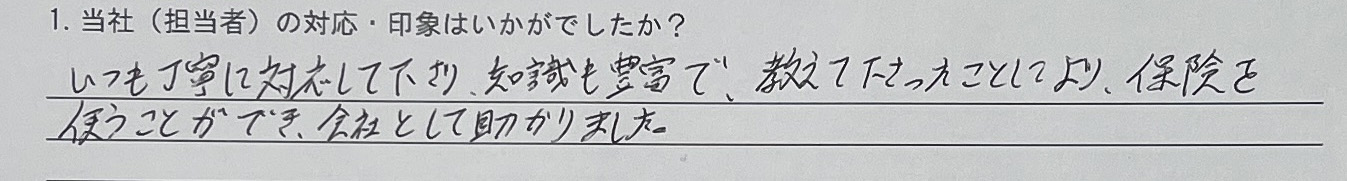 1. 当社（担当者）の対応・印象はいかがでしたか？
いつも丁寧に対応して下さり、知識も豊富で、教えて下さったことにより、保険を
使うことができ、会社として助かりました。